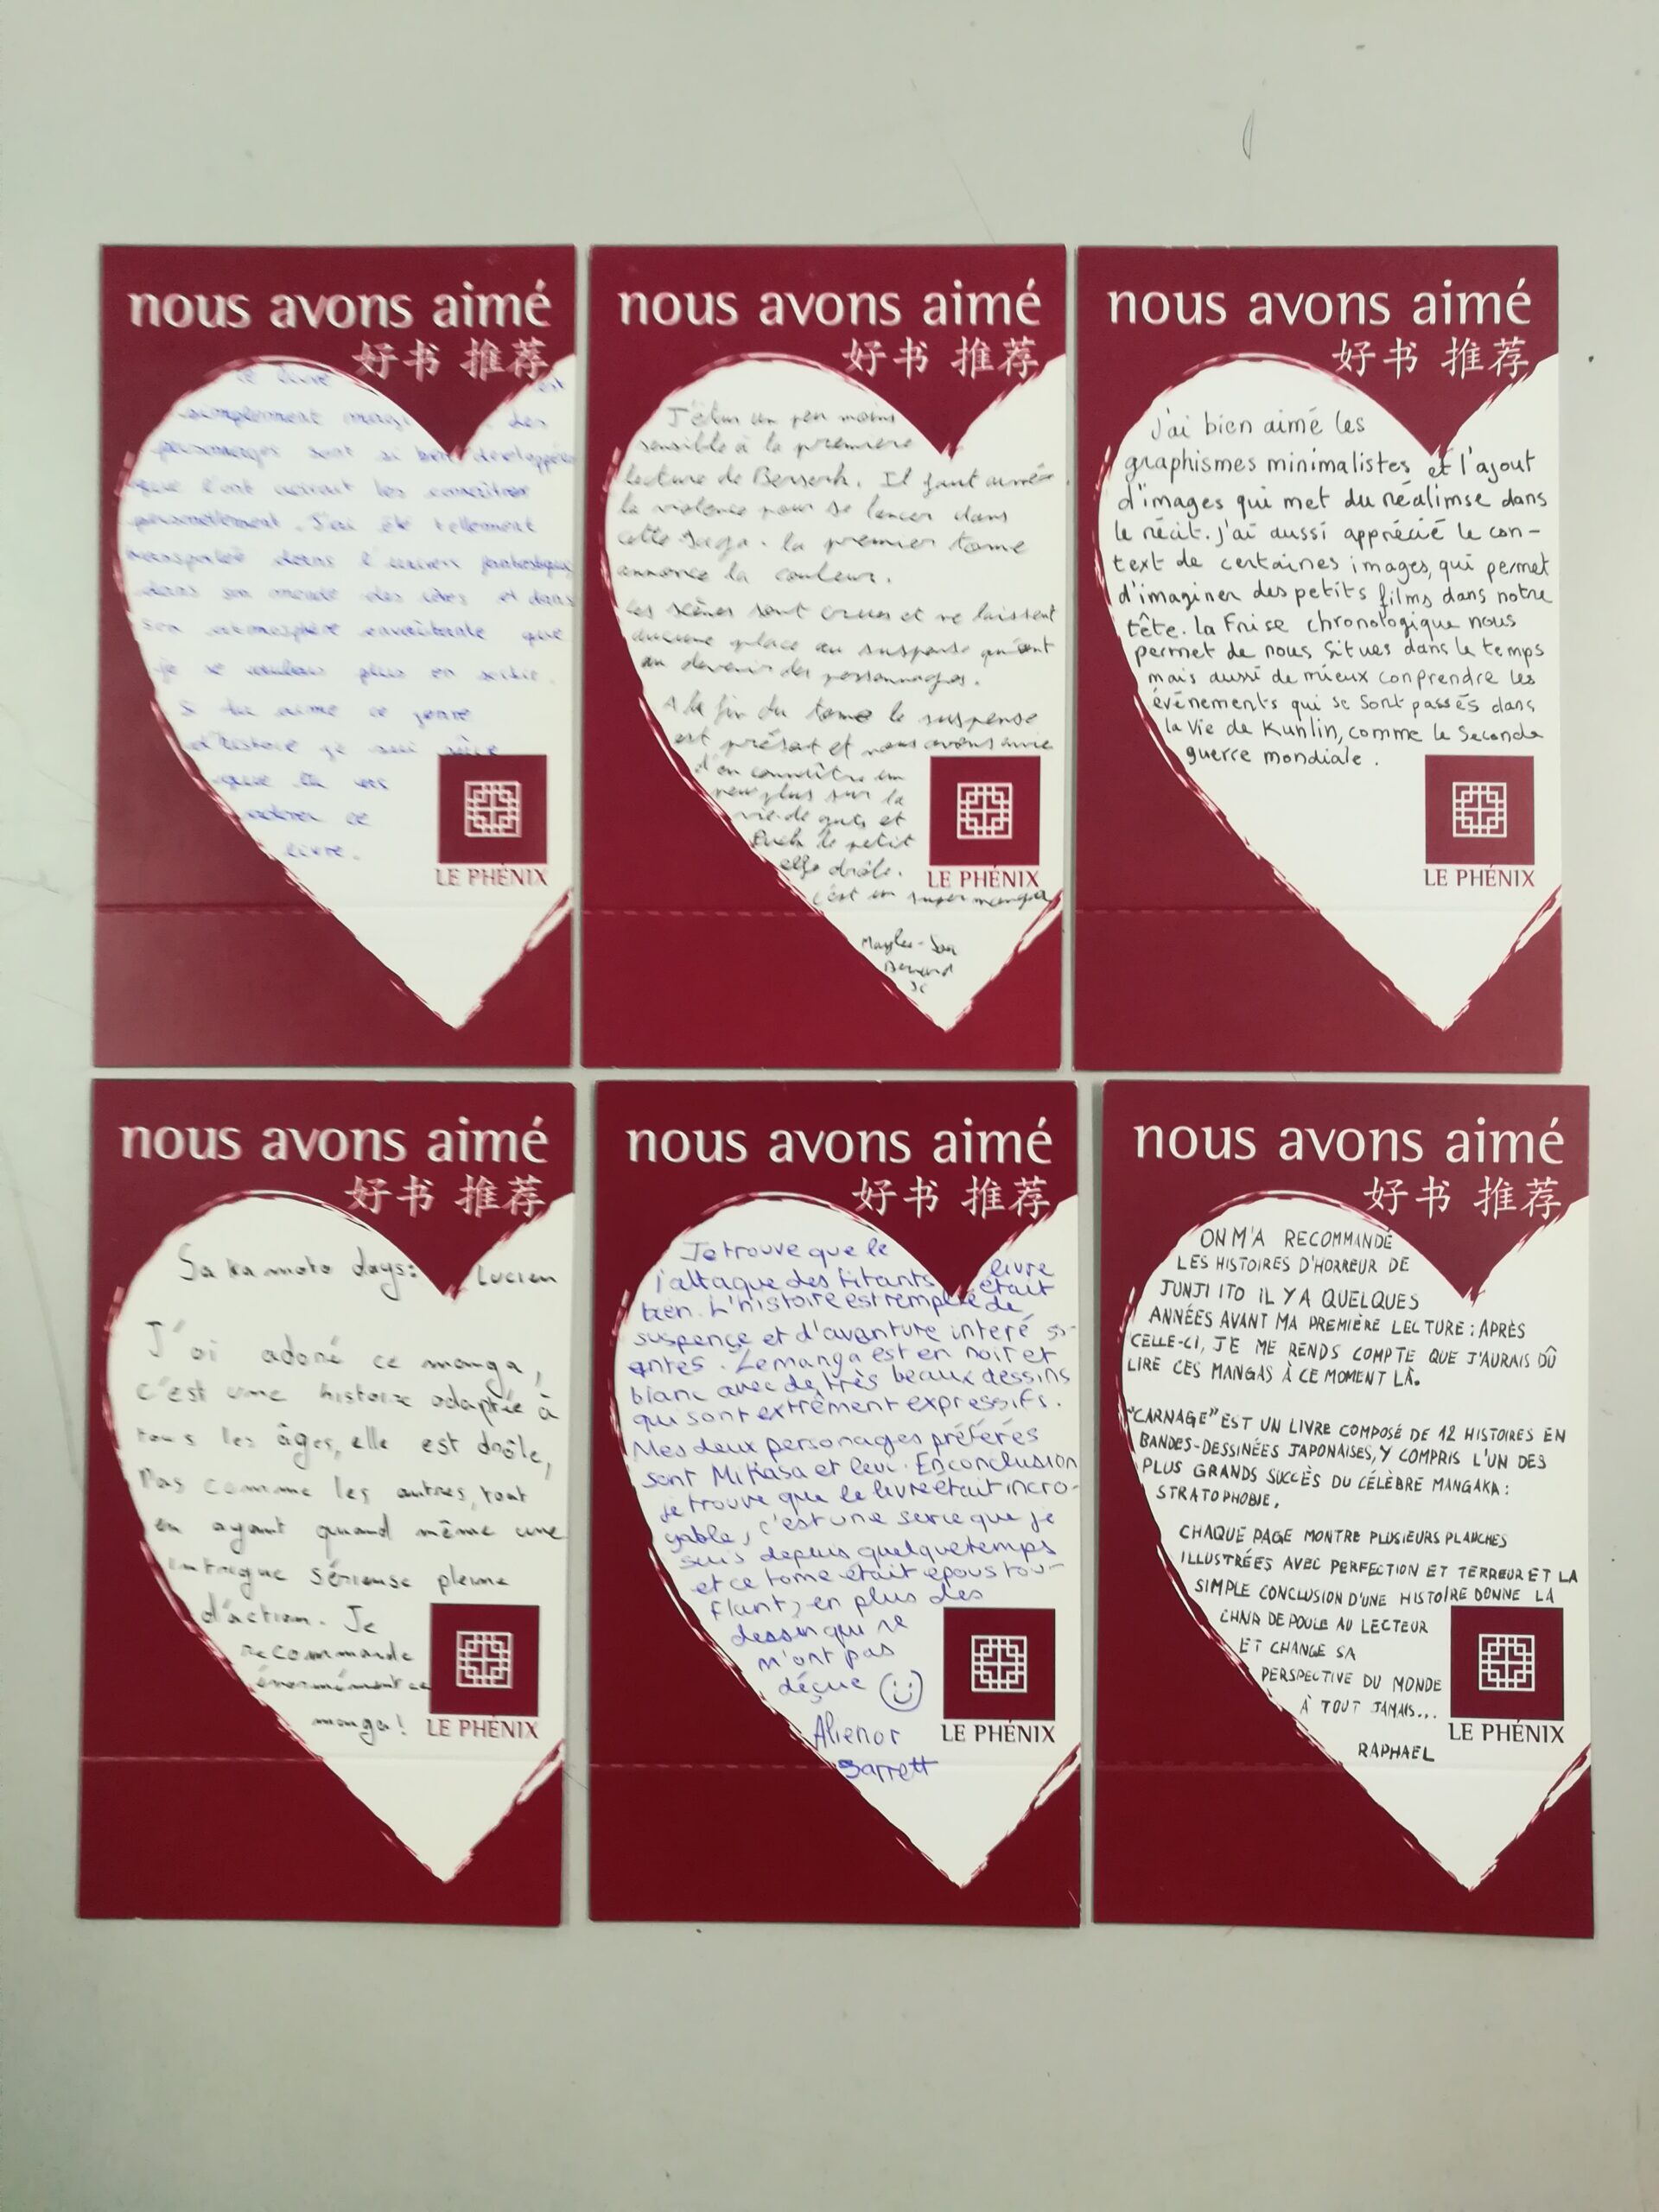 nous avons aimé
好书 推荐
ce livre est
simplement des
personnages sont si bien développées
que l'ont aurait les connaître
personellement. J'ai été tellement
transportée dans l'univers fantastique
dans son monde des et dans
son atmosphère envoûtante que
je ne voulais plus en sortir.
Si tu aime ce genre
d'histoire je suis sûre
que tu vas
adorer ce
livre.
LE PHÉNIX
nous avons aimé
好书 推荐
J'étais un peu moins
sensible à la première
lecture de Berserk. Il faut
la violence pour se lancer dans
cette saga. la premier tome
annonce la couleur.
Les scènes sont crues et ne laissent
aucune place au suspense
au devenir des personnages.
A la fin du tome le suspense
est présent et nous avons envie
d'en connaître un
peu plus sur la
vie de guts et
Puck le petit
elfe drôle.
C'est un super manga
Bernard
LE PHÉNIX
nous avons aimé
好书 推荐
J'ai bien aimé les
graphismes minimalistes et l'ajout
d'images qui met du réalimse dans
le récit. j'ai aussi apprécié le con-
text de certaines images, qui permet
d'imaginer des petits films dans notre
tête. la Frise chronologique nous
permet de nous situes dans le temps
mais aussi de mieux conprendre les
événements qui se sont passés dans
la vie de Kunlin, comme le Seconde
guerre mondiale.
LE PHÉNIX
nous avons aimé
好书 推荐
Sakamoto days: Lucien
J'ai adoré ce manga,
c'est une histoire adaptée à
tous les âges, elle est drôle,
Pas comme les autres, tout
en ayant quand même une
intrigue sérieuse pleine
d'action. Je
recommande
énormément ce
manga!
LE PHÉNIX
nous avons aimé
好书 推荐
Je trouve que le livre
l'attaque des titants était
bien. L'histoire est remplie de
suspence et d'aventure interé ss-
antes. Le manga est en noir et
blanc avec de très beaux dessins
qui sont extrêment expressifs.
Mes deux personages préférés
sont Mikasa et levi. En conclusion
je trouve que le livre était incro-
yable, c'est une serie que je
suis depuis quelque temps
et ce tome était épous tou-
flant, en plus des
dessin qui ne
m'ont pas
déçue
Alienor
Barrett
LE PHÉNIX
nous avons aimé
好书 推荐
ON M'A RECOMMANDÉ
LES HISTOIRES D'HORREUR DE
JUNJI ITO IL Y A QUELQUES
ANNÉES AVANT MA PREMIÈRE LECTURE; APRÈS
CELLE-CI, JE ME RENDS COMPTE QUE J'AURAIS DÛ
LIRE CES MANGAS À CE MOMENT LÀ.
"CARNAGE" EST UN LIVRE COMPOSÉ DE 12 HISTOIRES EN
BANDES-DESSINÉES JAPONAISES, Y COMPRIS L'UN DES
PLUS GRANDS SUCCÈS DU CÉLÈBRE MANGAKA:
STRATOPHOBIE.
CHAQUE PAGE MONTRE PLUSIEURS PLANCHES
ILLUSTRÉES AVEC PERFECTION ET TERREUR ET LA
SIMPLE CONCLUSION D'UNE HISTOIRE DONNE LA
CHAIR DE POULE AU LECTEUR
ET CHANGE SA
PERSPECTIVE DU MONDE
À TOUT JAMAIS...
RAPHAEL
LE PHÉNIX